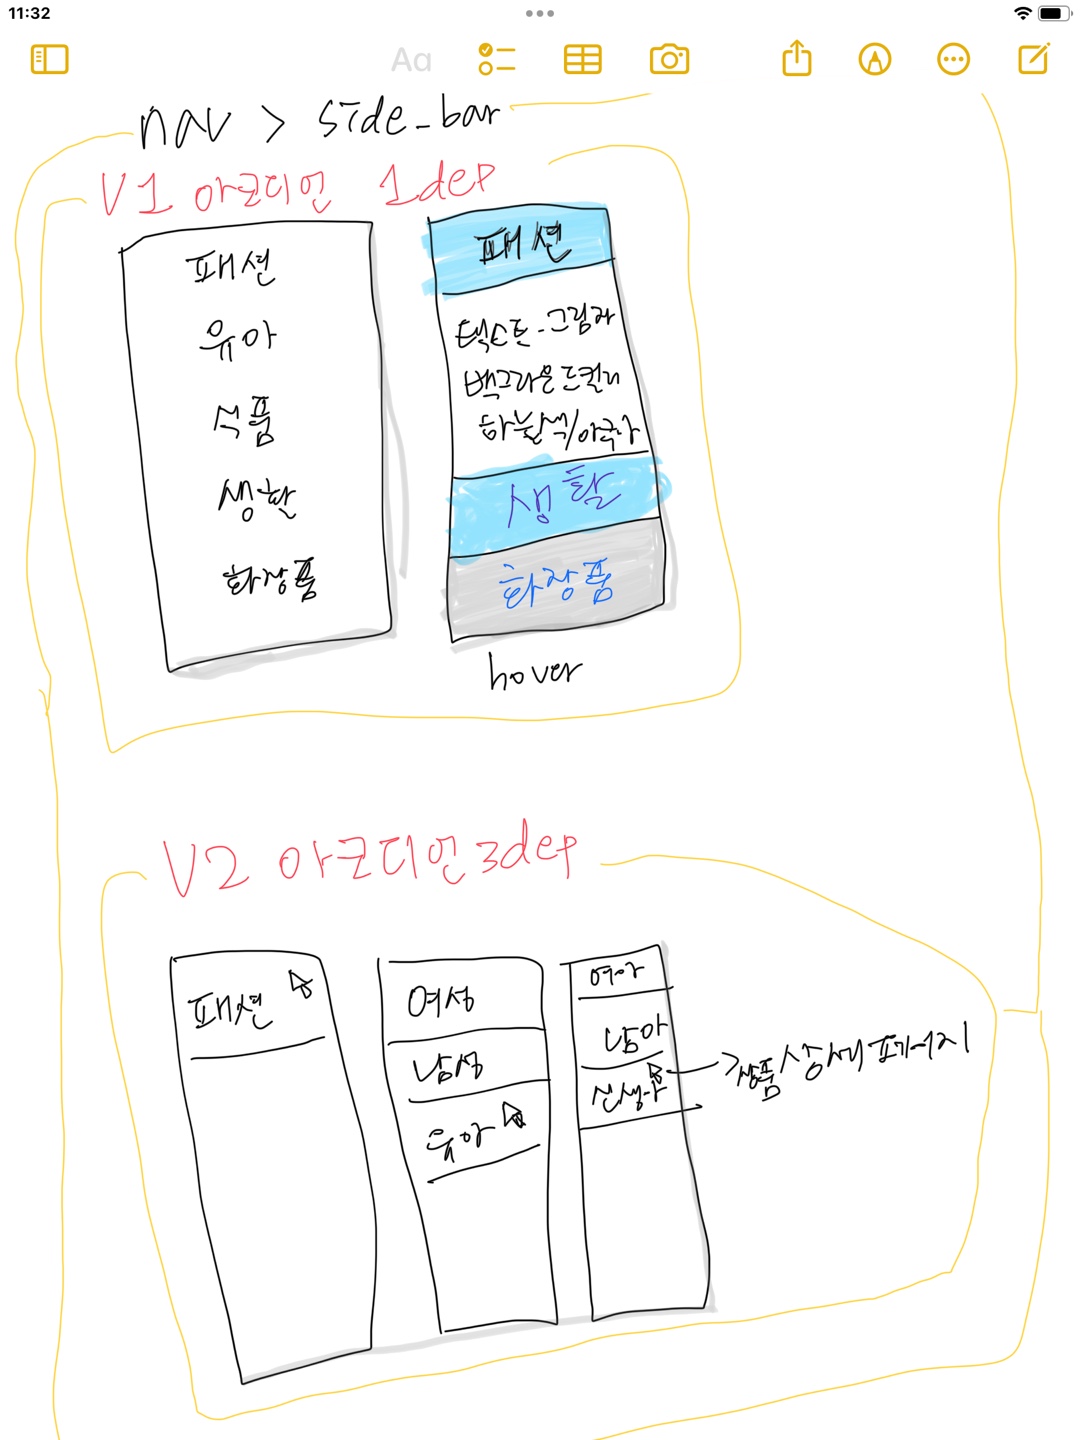 11:32
Aa
nav > side_bar
V1 아코디언 1dep
패션
유아
식품
생활
화장품
패션
텍스트_그림자
백그라운드컬러
하늘색/
생활
화장품
hover
V2 아코디언 3dep
패션
여성
남성
유아
여아
남아
신생아
상품상세페이지